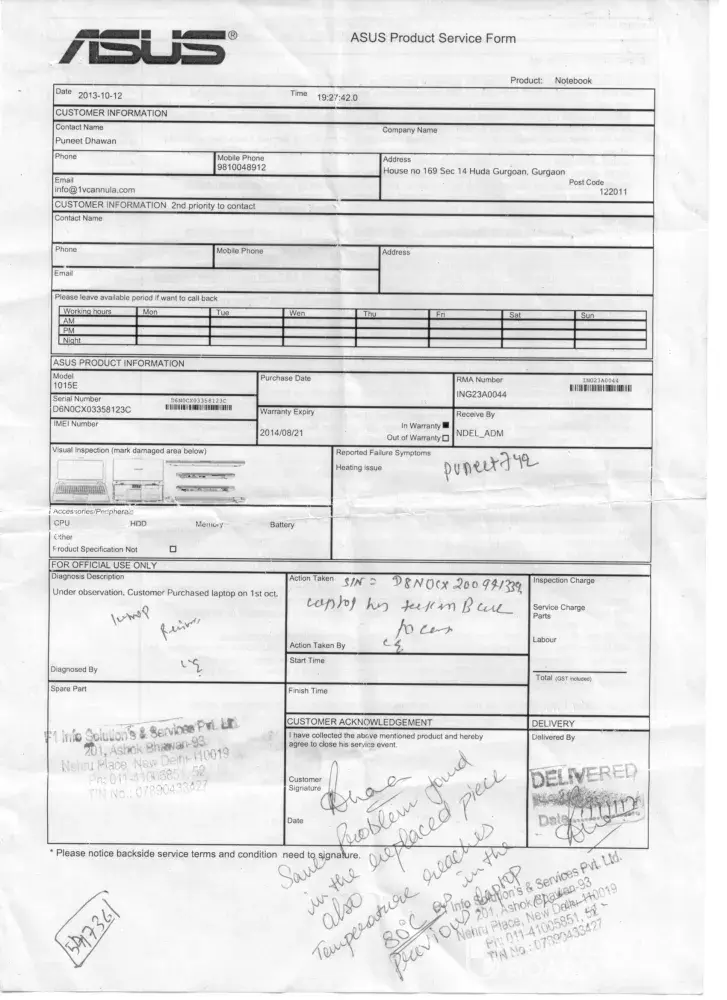 ASUS®
ASUS Product Service Form
Product: Notebook
Date 2013-10-12 Time 19:27:42.0
CUSTOMER INFORMATION
Contact Name Company Name
Puneet Dhawan
Phone Mobile Phone Address
9810048912 House no 169 Sec 14 Huda Gurgoan, Gurgaon
Email Post Code
info@1vcannula.com 122011
CUSTOMER INFORMATION 2nd priority to contact
Contact Name
Phone Mobile Phone Address
Email
Please leave available period if want to call back
Working hours Mon Tue Wen Thu Fri Sat Sun
AM
PM
Night
ASUS PRODUCT INFORMATION
Model Purchase Date RMA Number ING23A0044
1015E ING23A0044
Serial Number D6N0CX03358123C
D6N0CX03358123C Warranty Expiry Receive By
IMEI Number 2014/08/21 In Warranty NDEL_ADM
Out of Warranty
Visual Inspection (mark damaged area below) Reported Failure Symptoms
Heating issue puneet742
Accessories/Peripherals
CPU HDD Memory Battery
Other
Product Specification Not
FOR OFFICIAL USE ONLY
Diagnosis Description Action Taken S/N = Inspection Charge
Under observation, Customer Purchased laptop on 1st oct.
Service Charge
Parts
Action Taken By Labour
Start Time
Diagnosed By
Total (GST Included)
Spare Part Finish Time
CUSTOMER ACKNOWLEDGEMENT DELIVERY
I have collected the above mentioned product and hereby Delivered By
agree to close his service event.
F1 Info Solution's & Services Pvt. Ltd.
201, Ashok Bhawan-93
Nehru Place, New Delhi-110019
Ph: 011-41005851, 52
TIN No.: 07890433427
Customer
Signature
DELIVERED
Date
Date
* Please notice backside service terms and condition need to signature.
Same Problem found
in the replaced piece
also
Temperature reaches
80C in the
previous laptop
F1 Info Solution's & Services Pvt. Ltd.
201, Ashok Bhawan-93
Nehru Place, New Delhi-110019
Ph: 011-41005851, 52
TIN No.: 07890433427